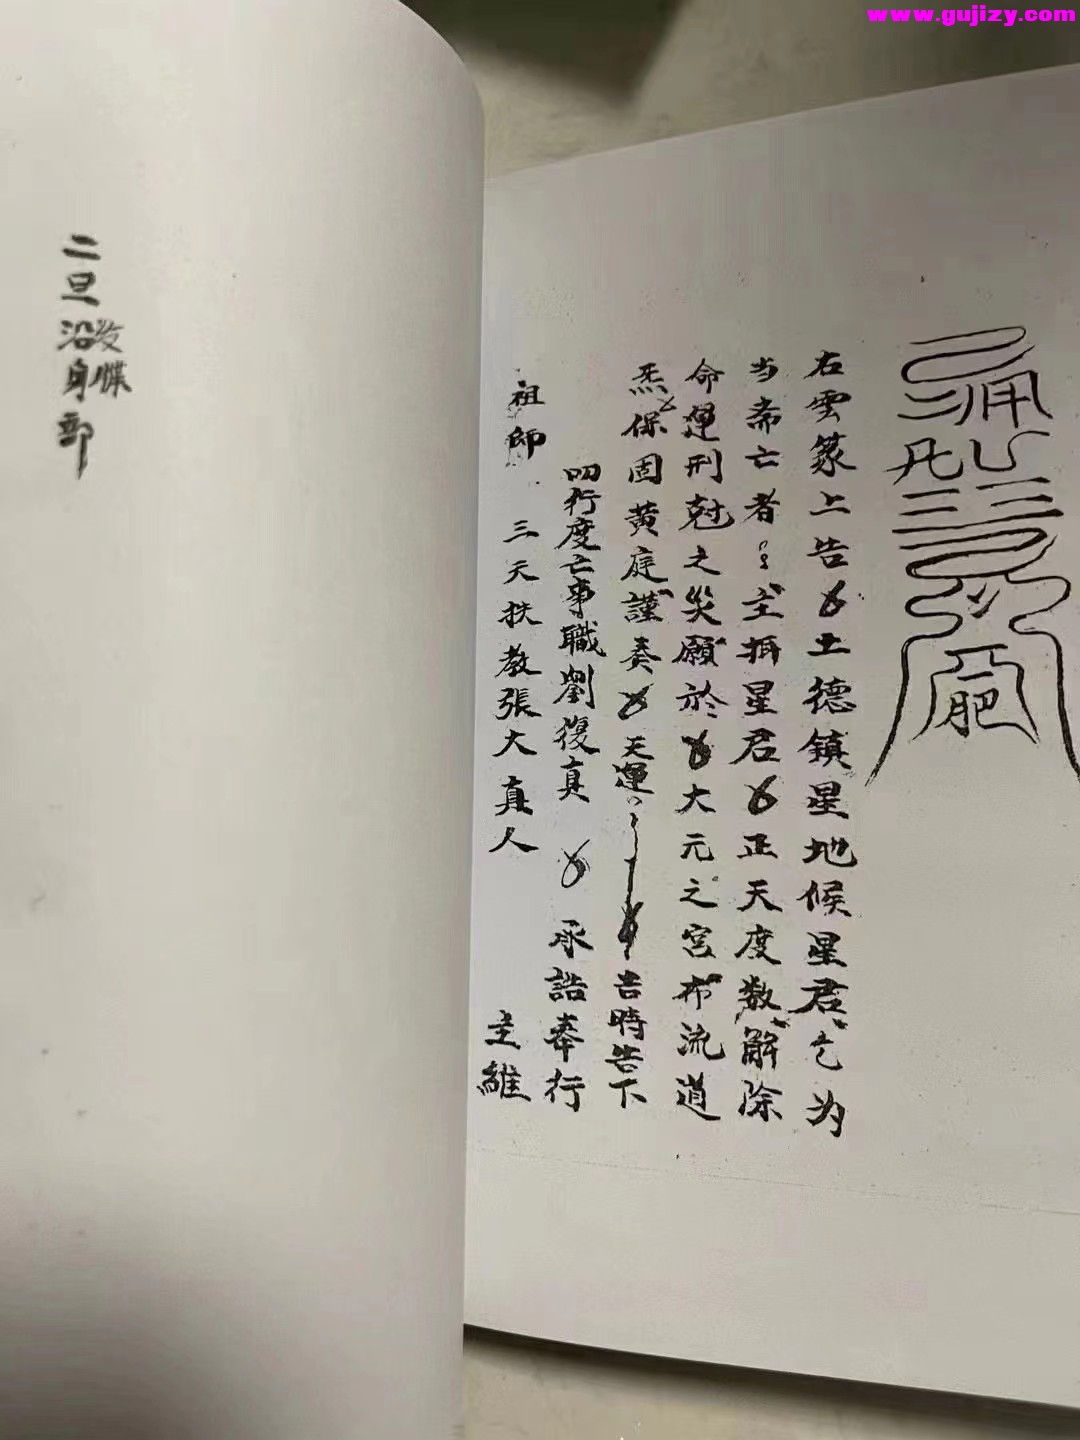 www.gujizy.com
右雲篆上告土德鎮星地候星君乞为
当斋亡者主捐星君正天度数解除
命運刑尅之災願於大元之宮布流道
炁保固黄庭謹奏天運吉時告下
叩行度亡事職劉復真承誥奉行
祖師三天扶教張大真人主維
二旦沿身部
发牒